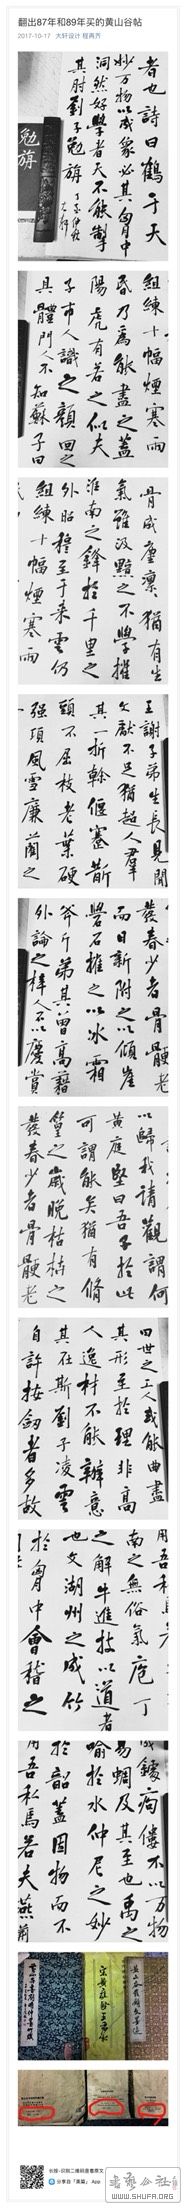 翻出87年和89年买的黄山谷帖
2017-10-17 大轩设计 程再齐
者也詩曰鶴于天
妙萬物以成象必其胸中
洞然好學者天不能掣
其肘劉子勉旃
勉旃
組練十幅煙寒雨
昏乃為能盡之蓋
陽虎有若之似夫
子市人識之顏回之
具體門人不知蘇子曰
骨成塵凜猶有生
氣雖汲黯之不學挫
淮南之鋒於千里之
外
至于來雲仍
組練十幅煙寒雨
王謝子弟生長見聞
文獻不足猶超人群
其一折幹偃蹇斲
頭不屈枝老葉硬
強項風雪廉藺之
發春少者骨骾老
而日新附之以傾崖
礐石摧之以冰霜
斧斤第其曾高藉
外論之梓人不以慶賞
以歸我請觀謂何
黃庭堅曰吾子於此
可謂能矣猶有脩
篁之歲晚枯枿之
發春少者骨骾老
世之工人或能曲盡
其形至於理非高
人逸材不能辦意
其在斯劉子凌雲
自許按劍者多故
用吾私焉
南之無俗氣庖丁
之解牛進技以道者
也文湖州之成竹
於胸中會稽之
成鐻痀僂不以萬物
易蜩及其至也禹之
喻於水仲尼之妙
於韶蓋因物而不
用吾私焉若夫燕荊
长按-识别二维码查看原文
分享自「美篇」App
WWW.SHUFA.ORG